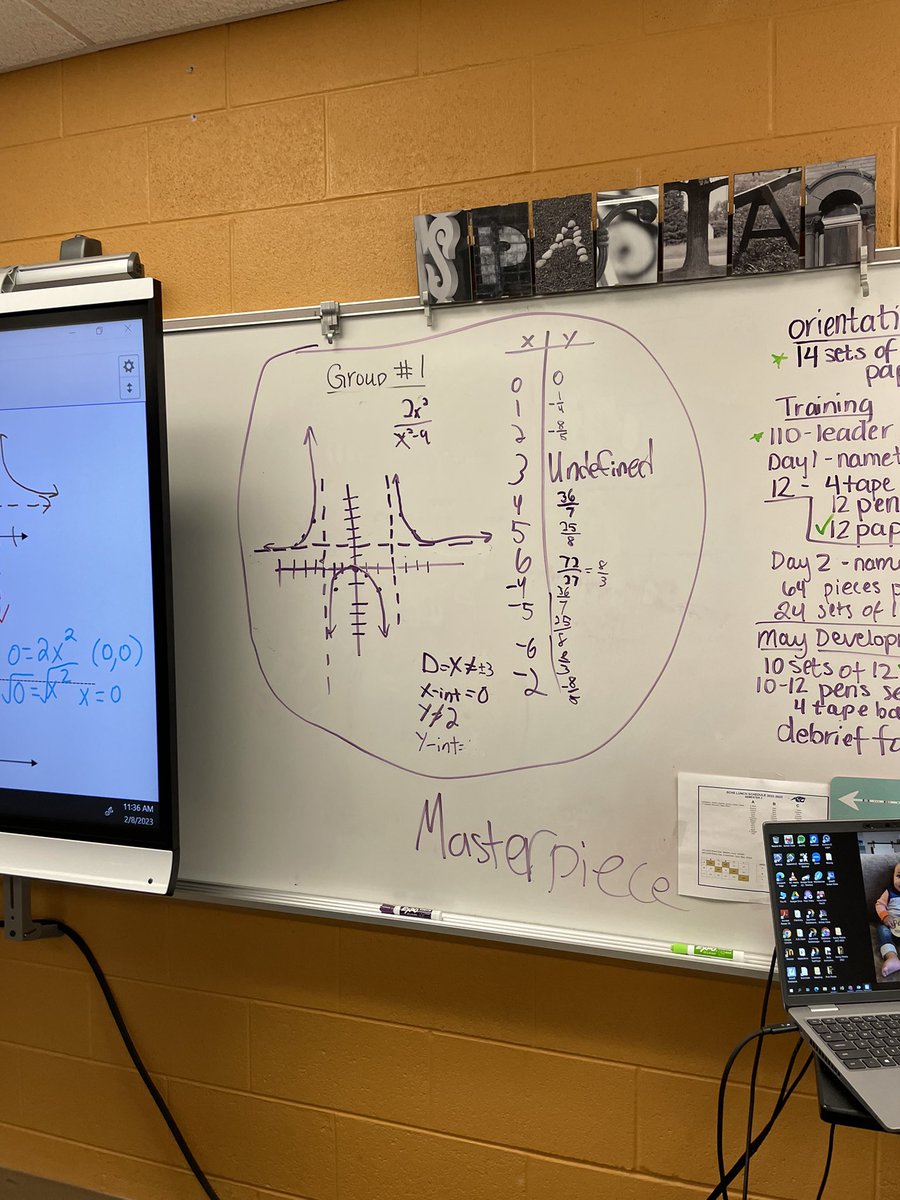 SPAGIAC
Group #1
2x²
x²-9
X Y
0 0
1 -1/4
2 -8/5
3 Undefined
4 36/7
5 25/8
6 72/27 = 8/3
-4 36/7
-5 25/8
-6 8/3
-2 -8/5
D=X≠±3
X-int=0
Y≠2
Y-int=
Masterpiece
0=2x² (0,0)
√0=√x² x=0
11:36 AM
2/8/2023
orientati
14 sets of
pap
Training
110-leader
Day 1-namet
12 - 4 tape
12 pen
12 pap
Day 2 - name
64 pieces p
24 sets of 1
May Developm
10 sets of 12
10-12 pens se
4 tape ba
debrief fo
EXPO
EXPO